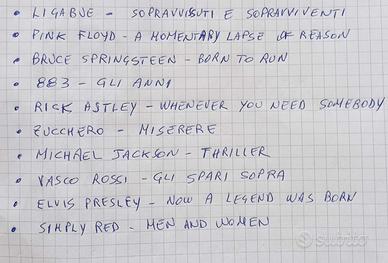 • LIGABUE - SOPRAVVISSUTI E SOPRAVVIVENTI
• PINK FLOYD - A MOMENTARY LAPSE OF REASON
• BRUCE SPRINGSTEEN - BORN TO RUN
• 883 - GLI ANNI
• RICK ASTLEY - WHENEVER YOU NEED SOMEBODY
• ZUCCHERO - MISERERE
• MICHAEL JACKSON - THRILLER
• VASCO ROSSI - GLI SPARI SOPRA
• ELVIS PRESLEY - NOW A LEGEND WAS BORN
• SIMPLY RED - MEN AND WOMEN
subito